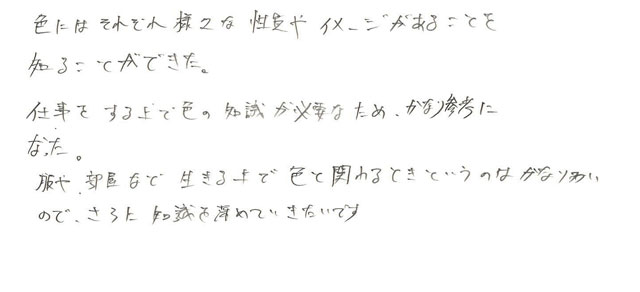 色にはそれぞれ様々な性質や イメージがあることを
知ることができた。
仕事をする上で色の知識が必要なため、かなり参考に
なった。
服や、部屋など生きる上で色と関わるときというのはかなり多い
ので、さらに知識を深めていきたいです